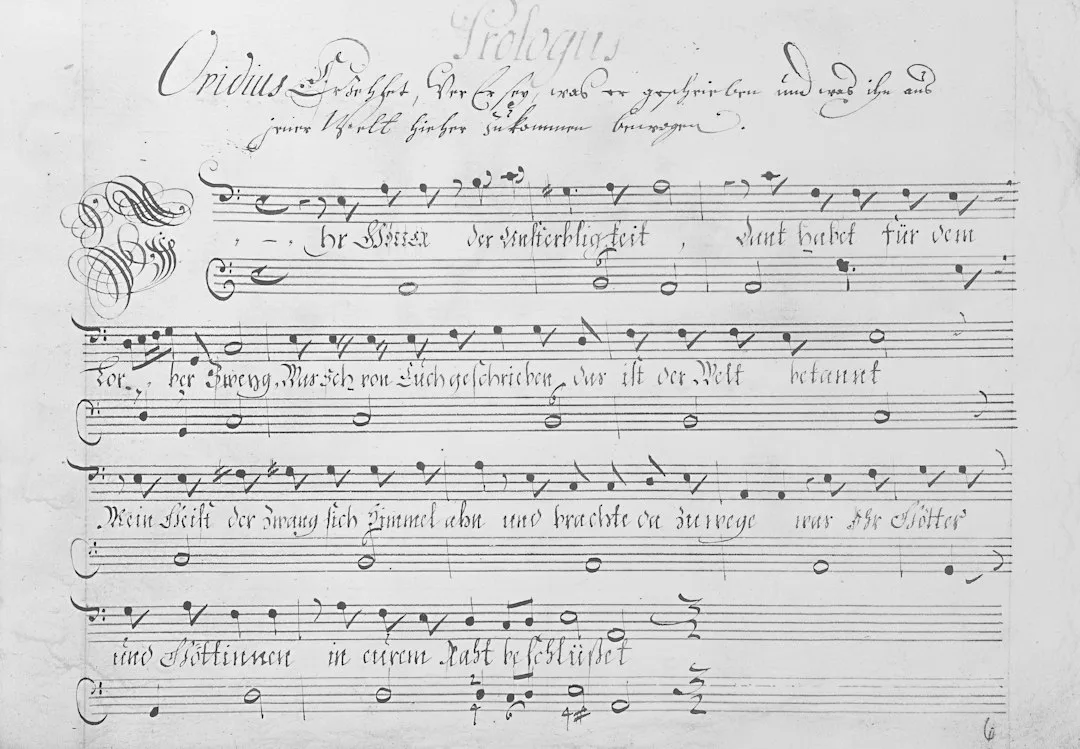 Prologus
Ovidius Erzehhet, Wer Er sey, was er geschrieben und was ihn aus
jener Welt hieher zukommen bewogen.
Ihr Götter der Unsterbligkeit, Danck habet für dem
Lor, ber Zweyg, Was Ich von Euch geschrieben, das ist der Welt bekannt
Mein Geist der zwang sich Himmel ahn und brachte da zuwege was Ihr Götter
und Göttinnen in eurem Raht beschlüßet
6